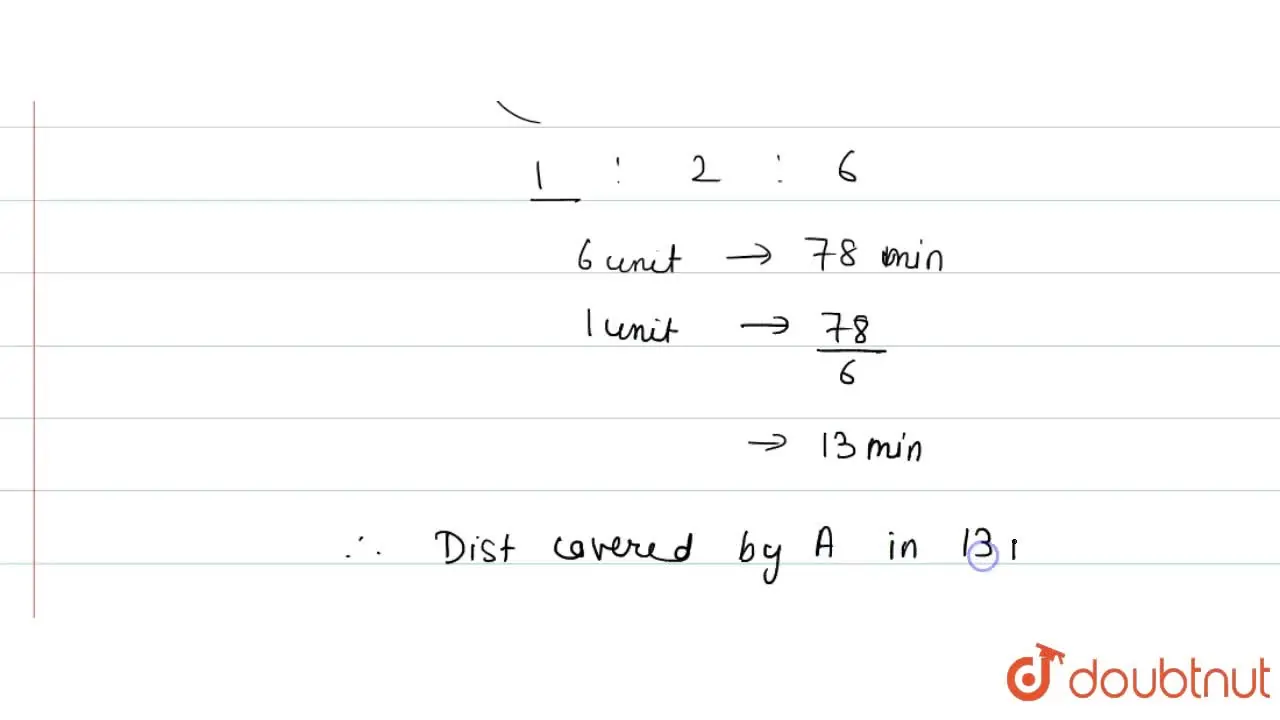 1 : 2 : 6
6 unit → 78 min
1 unit → 78/6
→ 13 min
∴ Dist covered by A in 13
doubtnut